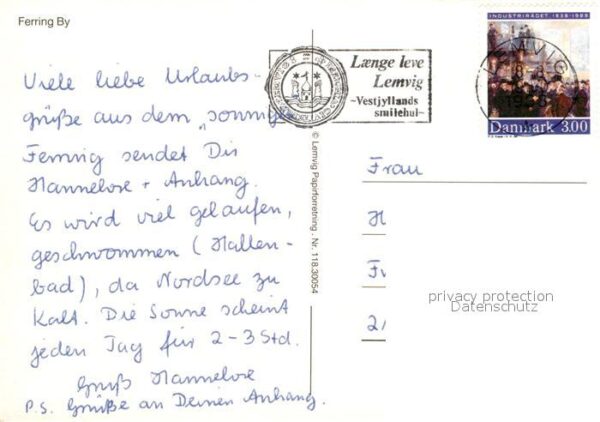 Ferring By
Viele liebe Urlaubs-
grüße aus dem "sonnigen
Ferring sendet Dir
Hannelore + Anhang.
Es wird viel gelaufen,
geschwommen (Hallen-
bad), da Nordsee zu
kalt. Die Sonne scheint
jeden Tag für 2-3 Std.
Gruß Hannelore
P.S. Grüße an Deinen Anhang.
© Lemvig Papirforretning. Nr. 118.30054
Længe leve
Lemvig
~Vestjyllands
smilehul~
INDUSTRIRÅDET 1838-1988
LEMVIG
Danmark 3.00
Frau
privacy protection
Datenschutz